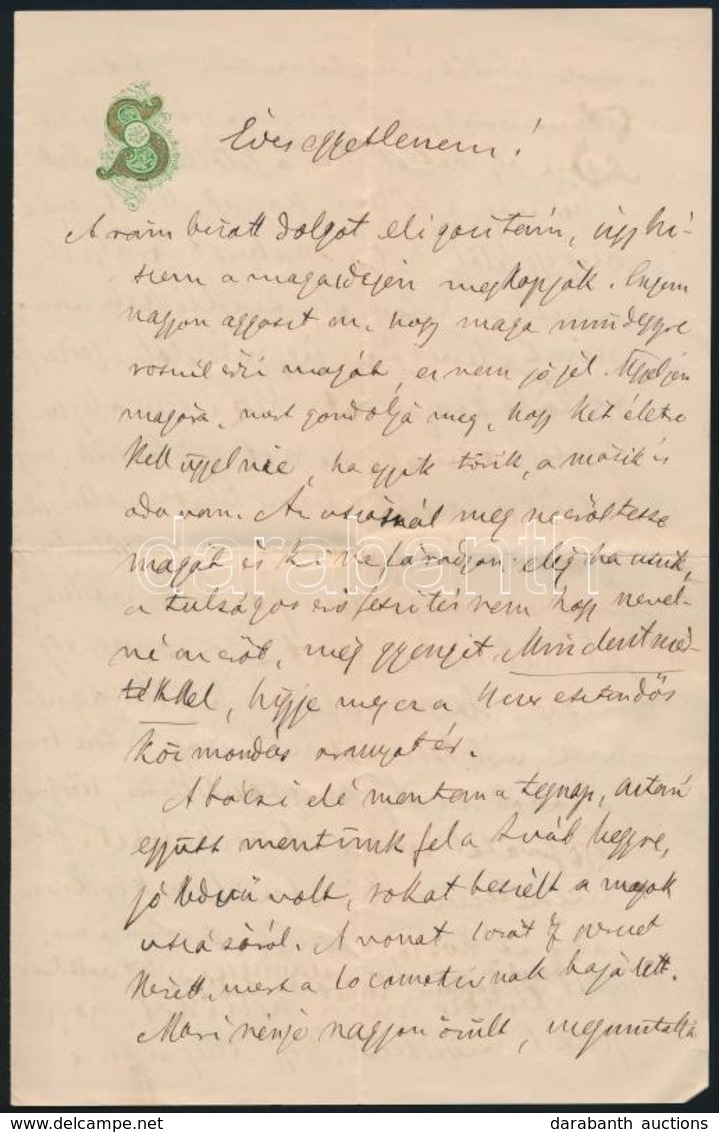 S
Édes egyetlenem!
A rám bízott dolgot eligazítám, úgy hi-
szem a maga idején megkapják. Engem
nagyon aggasít az, hogy maga mindegyre
roszúl érzi magát, ez nem jó jel. Ügyeljen
magára, most gondolja meg, hogy két életre
kell ügyelnie, ha egyik törik, a másik is
oda van. Az uszásnál meg ne erőltesse
magát és ki ne fáradjon, elég ha uszik,
a tulságos erőfeszítés nem hogy nevel-
né az erőt, még gyengít. Mindent mér-
tékkel, higyje meg ez a 4ezer esztendős
közmondás aranyat ér.
A bácsi elé mentem a tegnap, aztán
együtt mentünk fel a Sváb hegyre,
jó kedvü volt, sokat beszélt a magok
uszásáról. A vonat 1 órát 7 percet
késett, mert a locomotivnak baja lett.
Mari nénje nagyon örült, megmutatta
darabanth
darabanth auctions
www.darabanth.com